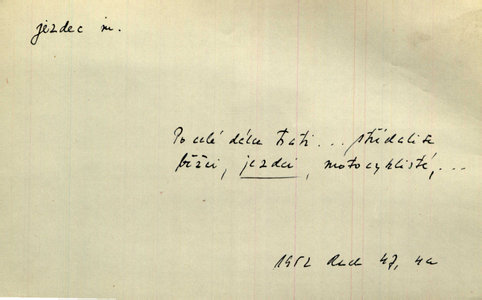 jezdec m.
Po celé délce trati... střídali se
běžci, jezdci, motocyklisté,...
1952 Rud 47, 4a